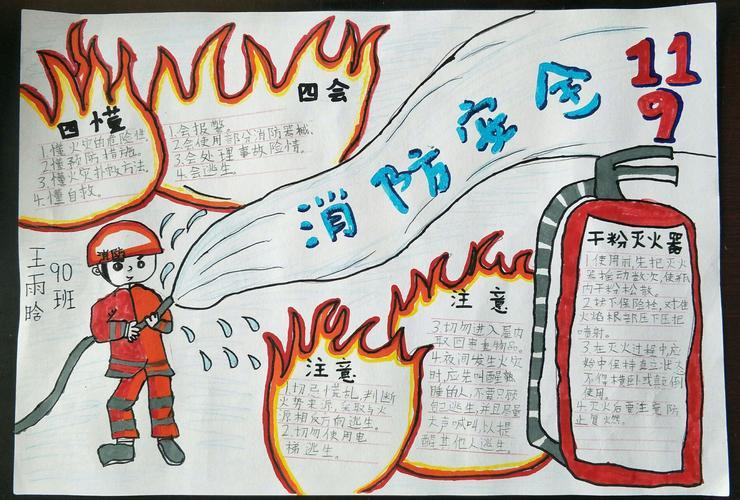 四懂
1.懂火灾的危险性.
2.懂预防措施.
3.懂火灾扑救方法.
4.懂自救.
四会
1.会报警
2.会使用部分消防器械.
3.会处理事故险情.
4.会逃生.
消防安全
119
消防
王雨晗
90班
注意
1.切忌慌乱,判断
火势来源,采取与火
源相反方向逃生.
2.切勿使用电
梯逃生.
注意
3.切勿进入屋内
取回贵重物品.
4.夜间发生火灾
时,应先叫醒熟
睡的人,不要只顾
自己逃生,并且尽量
大声喊叫,以提
醒其他人逃生.
干粉灭火器
1.使用前,先把灭火
器摇动数次,使瓶
内干粉松散.
2.拔下保险栓,对准
火焰根部压下压把
喷射.
3.在灭火过程中,应
始中保持直立状态
不得横卧或颠倒
使用.
4.灭火后要注意防
止复燃.